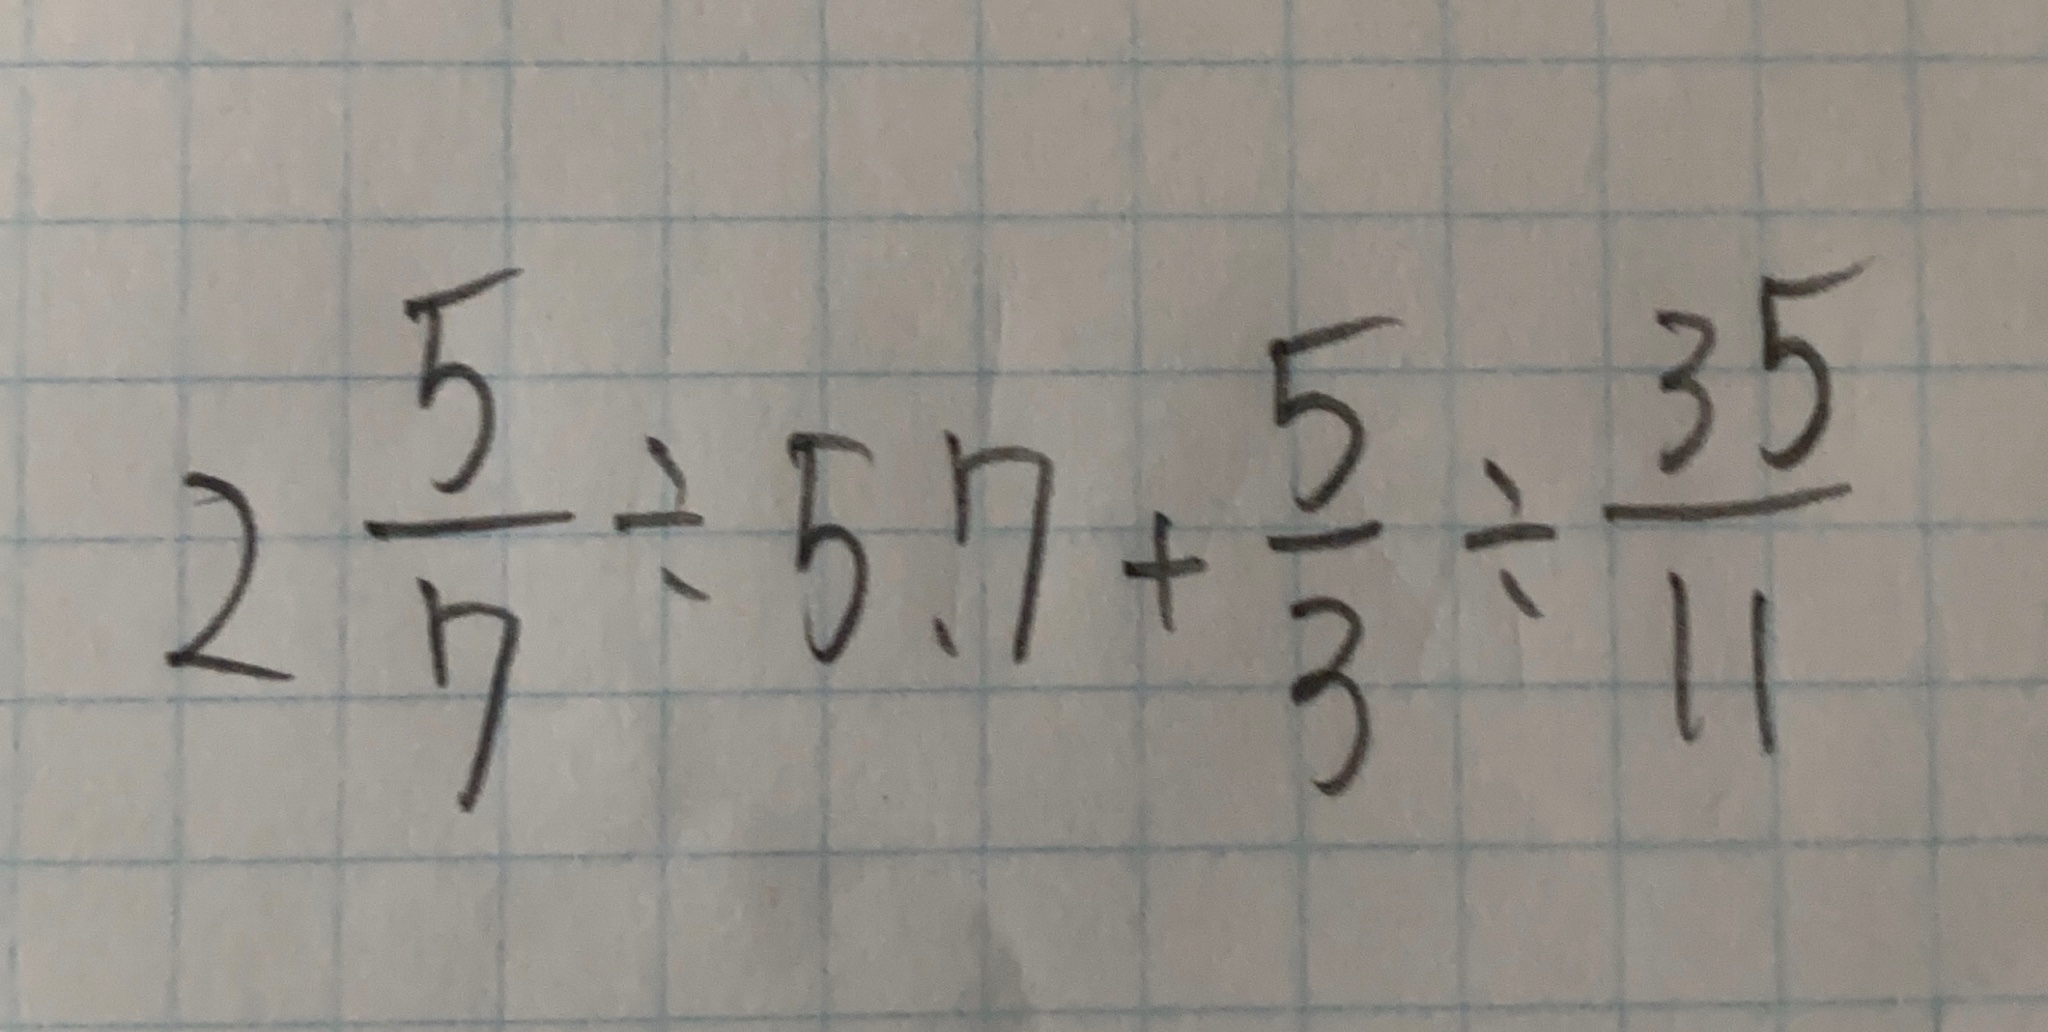 2 5/7 ÷ 5.7 + 5/3 ÷ 35/11